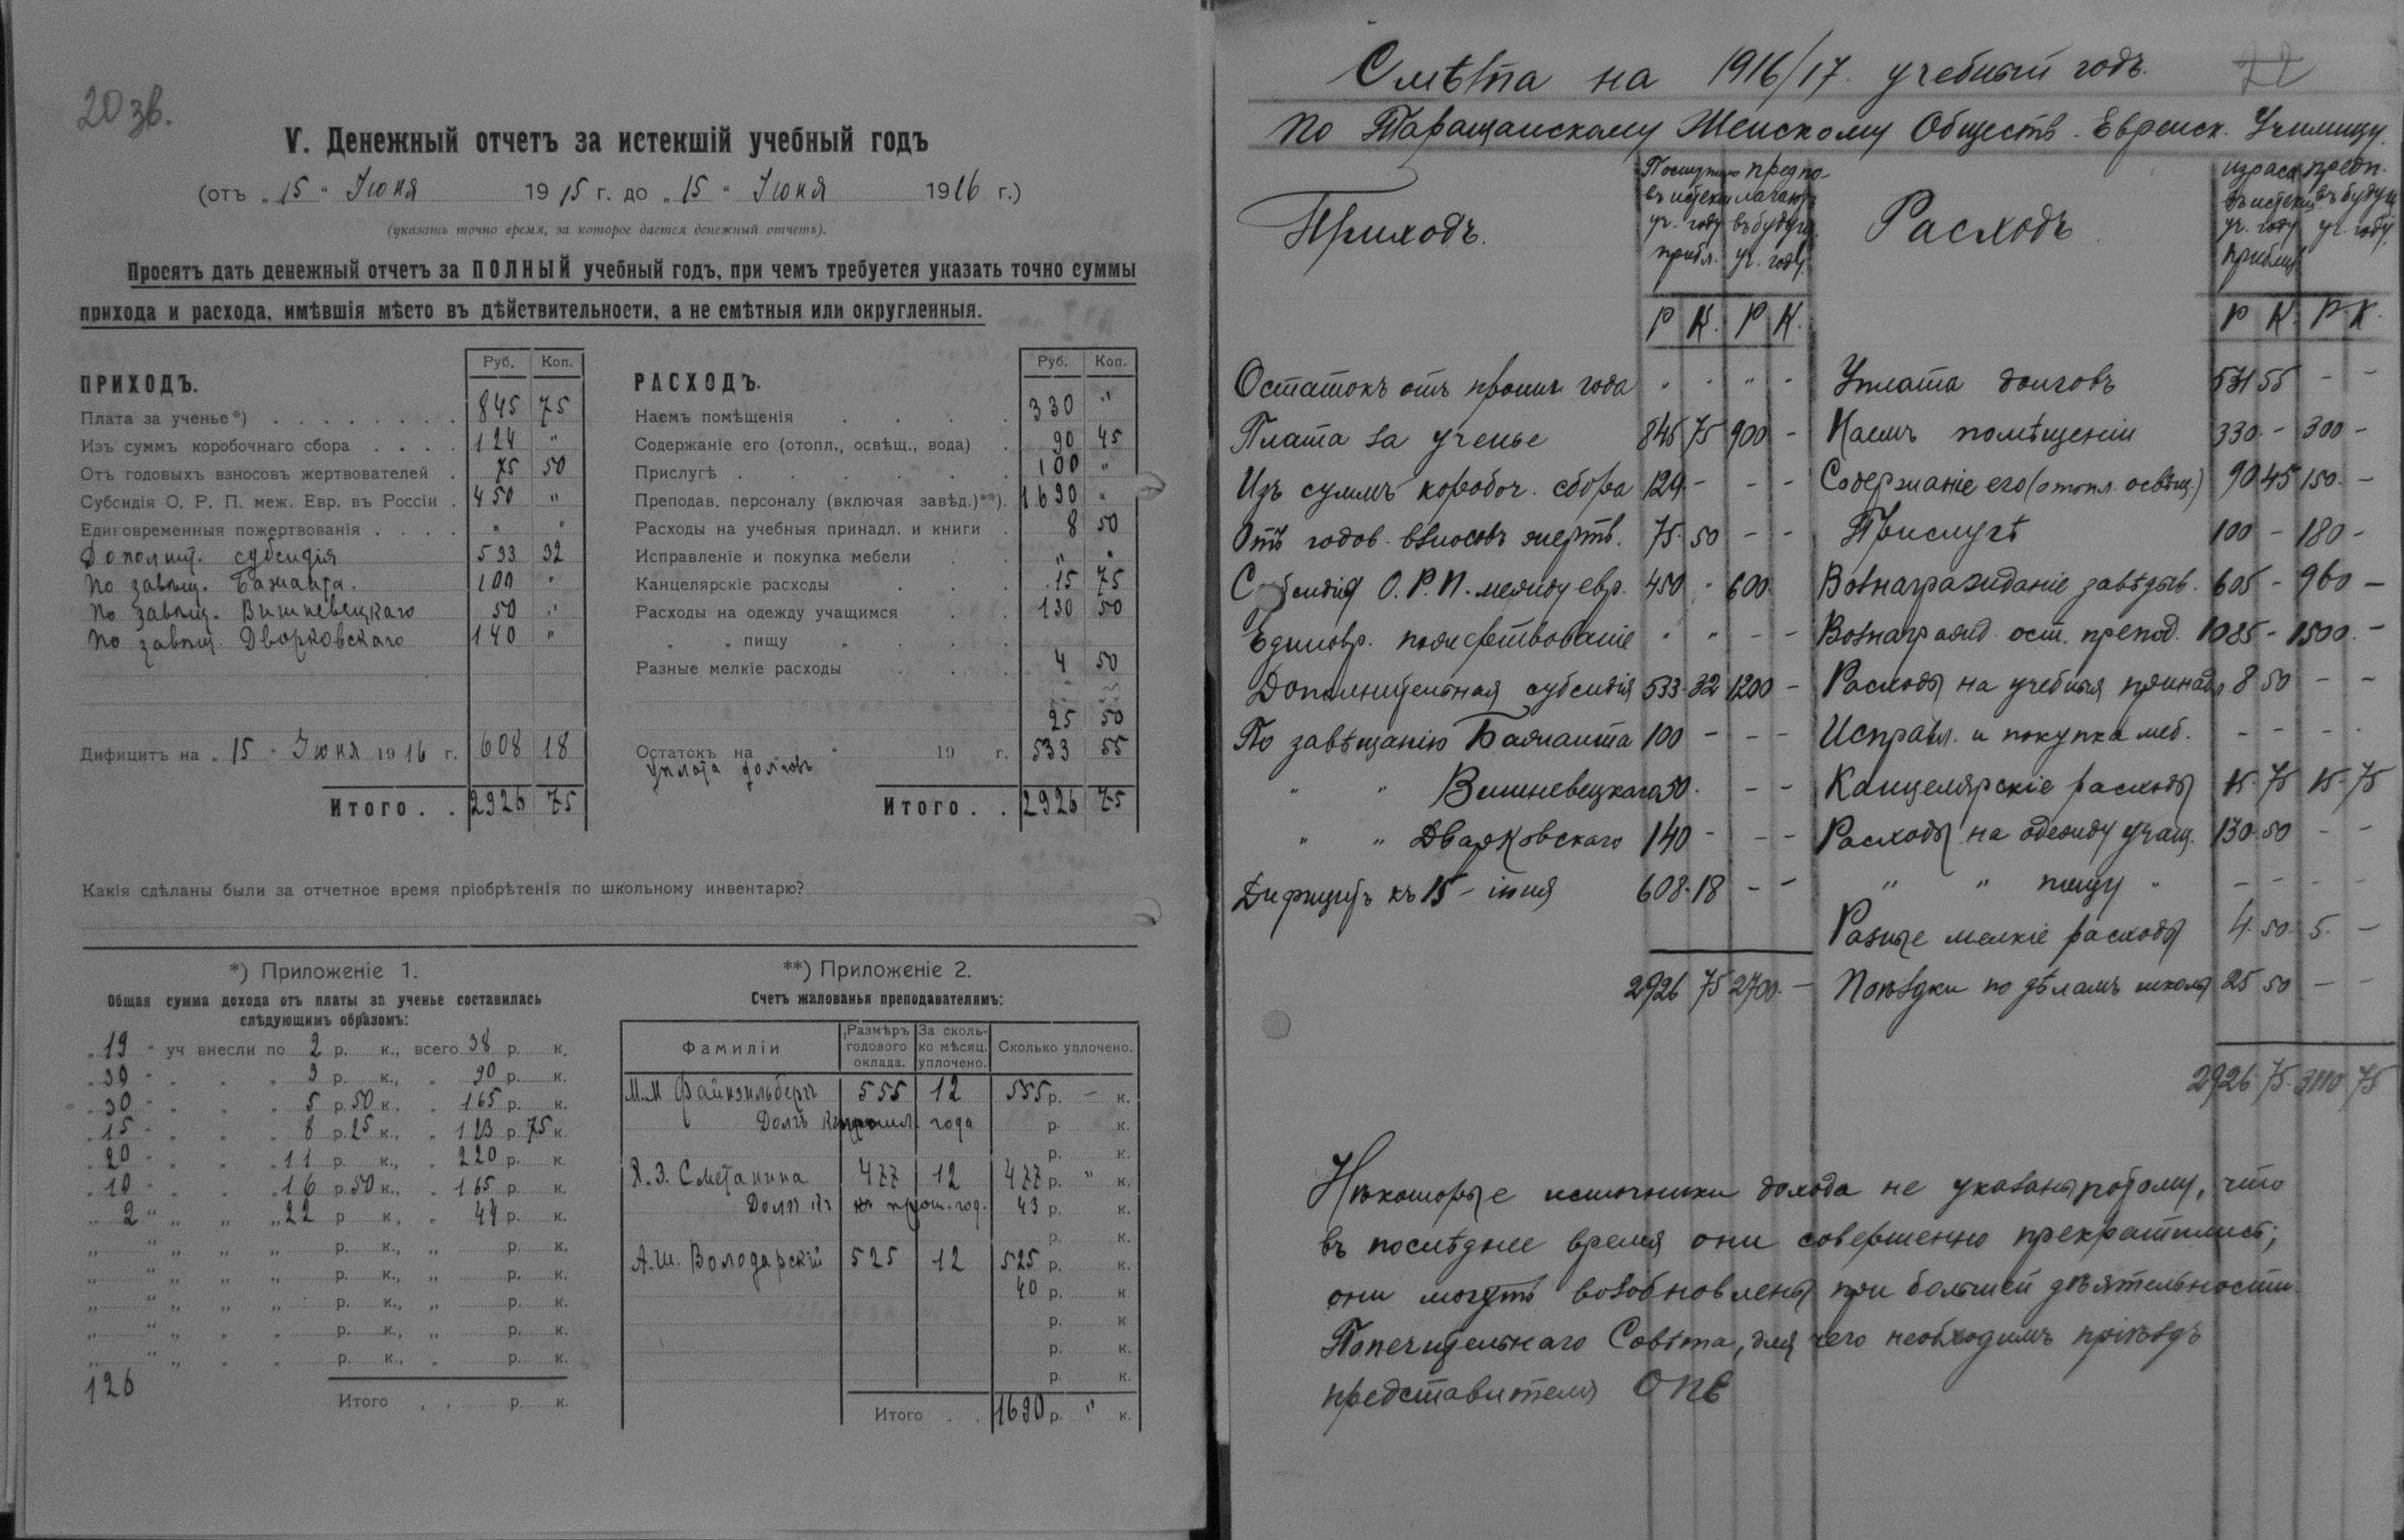 20 зв.
V. Денежный отчетъ за истекшій учебный годъ
(отъ „15" Іюня 1915 г. до „15" Іюня 1916 г.)
(указать точно время, за которое дается денежный отчетъ).
Просятъ дать денежный отчетъ за ПОЛНЫЙ учебный годъ, при чемъ требуется указать точно суммы
прихода и расхода, имѣвшія мѣсто въ дѣйствительности, а не смѣтныя или округленныя.
ПРИХОДЪ. Руб. Коп.
Плата за ученье*) 845 75
Изъ суммъ коробочнаго сбора 124 "
Отъ годовыхъ взносовъ жертвователей 75 50
Субсидія О. Р. П. меж. Евр. въ Россіи 450 "
Единовременныя пожертвованія " "
Дополнит. субсидія 533 32
По завѣщ. Бажанта. 100 "
По завѣщ. Вишневецкаго 50 "
По завѣщ. Дворковскаго 140 "
Дифицитъ на „15" Іюня 1916 г. 608 18
Итого . . 2926 75
РАСХОДЪ. Руб. Коп.
Наемъ помѣщенія 330 "
Содержаніе его (отопл., освѣщ., вода) 90 45
Прислугѣ 100 "
Преподав. персоналу (включая завѣд.)**). 1690 "
Расходы на учебныя принадл. и книги 8 50
Исправленіе и покупка мебели " "
Канцелярскіе расходы 15 75
Расходы на одежду учащимся 130 50
" " пищу "
Разные мелкіе расходы 4 50
25 50
Остатокъ на " 19 г. 533 55
уплата долговъ
Итого . . 2926 75
Какія сдѣланы были за отчетное время пріобрѣтенія по школьному инвентарю?
*) Приложеніе 1.
Общая сумма дохода отъ платы за ученье составилась
слѣдующимъ образомъ:
„19" уч внесли по 2 р. к., всего 38 р. к.
„30" „ „ „ 3 р. к., „ 90 р. к.
„30" „ „ „ 5 р. 50 к., „ 165 р. к.
„15" „ „ „ 8 р. 25 к., „ 123 р. 75 к.
„20" „ „ „ 11 р. к., „ 220 р. к.
„10" „ „ „ 16 р. 50 к., „ 165 р. к.
„2" „ „ „ 22 р к, „ 44 р. к.
„ " „ „ „ р. к., „ р. к.
„ " „ „ „ р. к., „ р. к.
„ " „ „ „ р. к., „ р. к.
„ " „ „ „ р. к., „ р. к.
„ " „ „ „ р. к., „ р. к.
126
Итого . . р. к.
**) Приложеніе 2.
Счетъ жалованья преподавателямъ:
Фамиліи Размѣръ годового оклада. За сколько мѣсяц. уплочено. Сколько уплочено.
М.М Файнзильберъ 555 12 555 р. – к.
Долгъ прошл. года р. к.
р. к.
Х.З. Сметанина 477 12 477 р. " к.
Долгъ прош. год. 43 р. к.
р. к.
А.Ш. Володарскій 525 12 525 р. к.
40 р. к
р. к
р. к.
р. к.
Итого . . 1690 р. " к.
22
Смѣта на 1916/17. учебный годъ.
По Таращанскому Женскому Обществ. Еврейск. Училищу.
Приходъ.
Поступило въ истекш уч. году прибл.
Предполагают въ будущ. уч. году.
Расходъ
израсх въ истекш уч. году приблиз
предп. въ будущ уч. году.
Р К. Р К. Р К. Р. К.
Остатокъ отъ прошл года " - " -
Плата за ученье 845 75 900 -
Изъ суммъ коробоч. сбора 124 - - -
Отъ годов. взносовъ жертв. 75. 50 - -
Субсидія О.Р.П. между евр. 450 - 600.
Единовр. пожертвованіе " " - -
Дополнительная субсидія 533. 32 1200 -
По завѣщанію Бажанта 100 - - -
" " Вишневецкаго 50. - -
" " Дворковскаго 140 - - -
Дифицитъ къ 15 – іюня 608. 18 - -
2926 75 2700. -
Уплата долговъ 531 55 - -
Наемъ помѣщенія 330 - 300 -
Содержаніе его (отопл. освѣщ.) 90 45 150. -
Прислугѣ 100 - 180 -
Вознагражданіе завѣдыв. 605 - 960 -
Вознагражд. ост. препод. 1085 - 1500. -
Расходы на учебныя принадл 8 50 - -
Исправл. и покупка меб. - - - -
Канцелярскіе расходы 15. 75 15. 75
Расходы на одежду учащ. 130. 50 - -
" " пищу " - - - -
Разные мелкіе расходы 4. 50. 5. -
Поѣздки по дѣламъ школы 25 50 - -
2926. 75. 3110 75
Нѣкоторые источники дохода не указаны потому, что
въ послѣднее время они совершенно прекратились;
они могутъ возобновлены при большей дѣятельности
Попечительнаго Совѣта, для чего необходимъ пріѣздъ
представителя ОПЕ